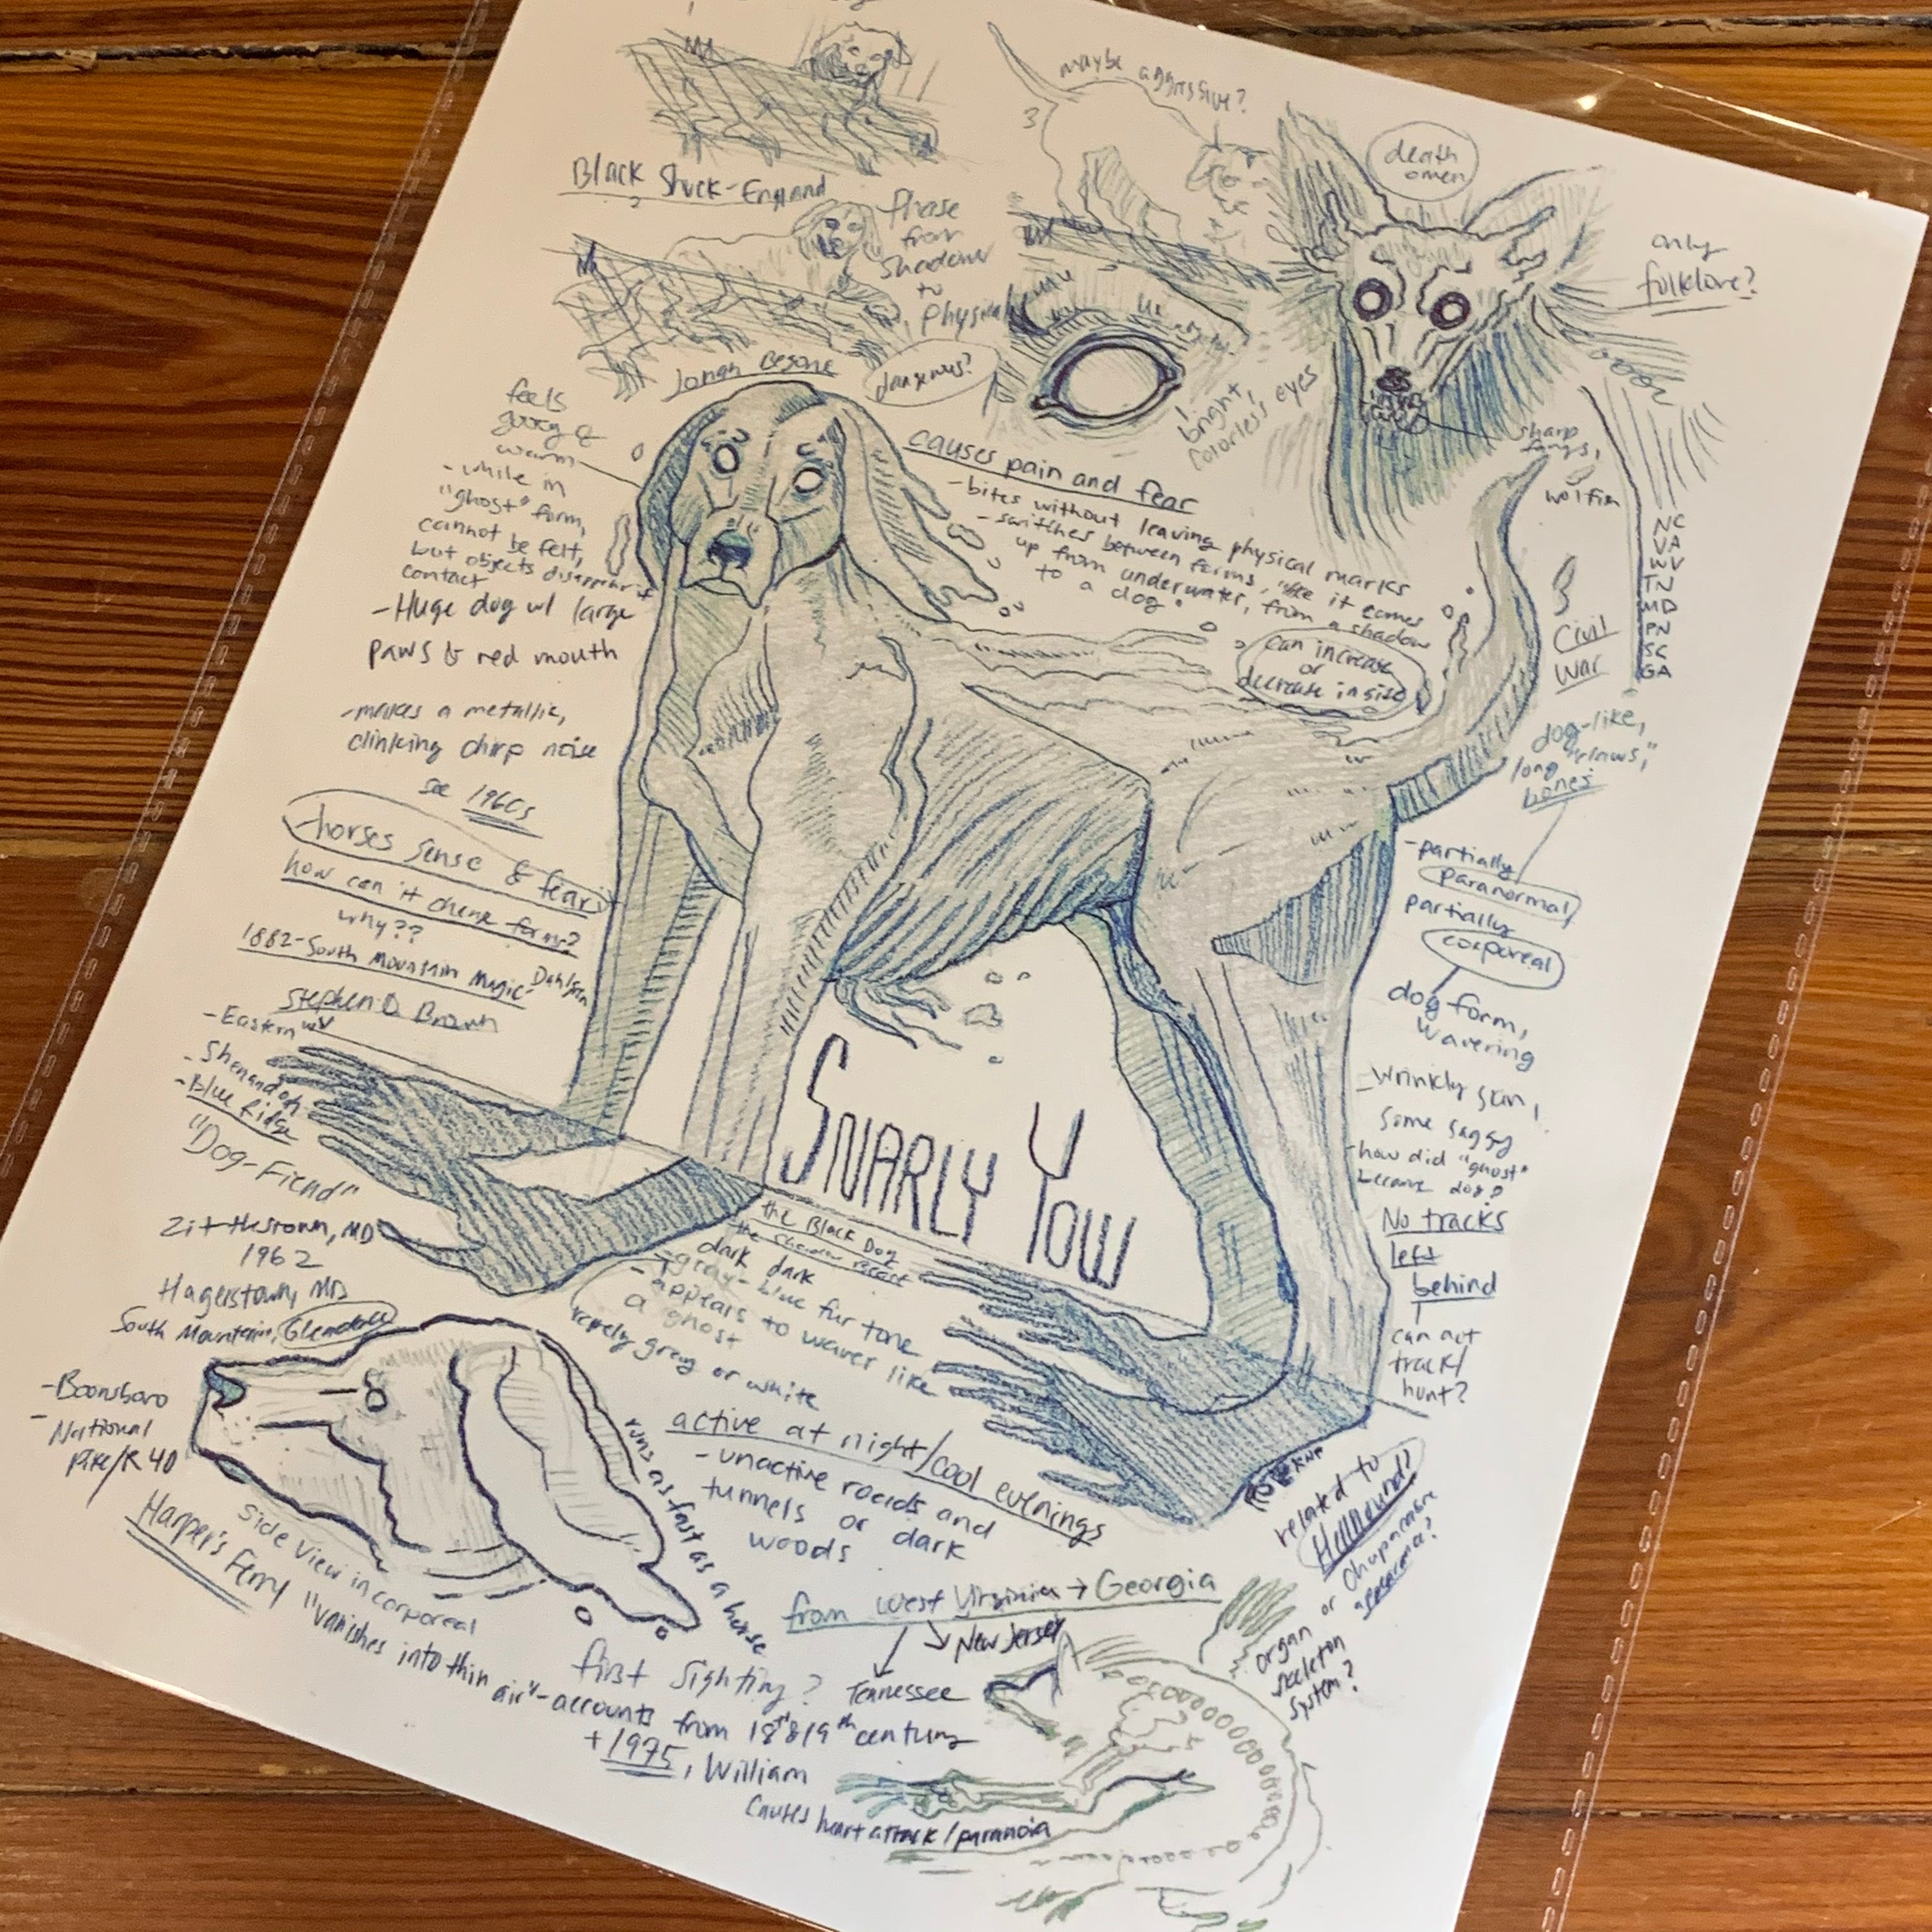 maybe aggressive?
death
omen
only
folklore?
Black Shuck - England
Phase
from
shadow
to
physical
dangerous?
bright,
colorless eyes
sharp
fangs,
wolfish
NC
VA
WV
TN
MD
PN
SC
GA
Civil
War
feels
warm
- while in
"ghost" form,
cannot be felt,
but objects disappear
contact
- Huge dog w/ large
paws & red mouth
- makes a metallic,
clinking chirp noise
see 1960s
causes pain and fear
- bites without leaving physical marks
- switches between forms, "like it comes
up from underwater, from a shadow
to a dog"
can increase
or
decrease in size
dog-like,
long
bones
- partially
paranormal,
partially
corporeal
dog form,
wavering
- wrinkly skin,
some saggy
- how did "ghost"
become dog?
No tracks
left
behind
can not
track/
hunt?
- horses sense & fear
how can it change forms?
why??
1882 - South Mountain Magic - Dahlgren
Stephen D. Brown
- Eastern WV
- Shenandoah
- Blue Ridge
"Dog-Fiend"
Zittlestown, MD
1962
Hagerstown, MD
South Mountain, Glendale
- Boonsboro
- National
Pike/R 40
Harper's Ferry
Side view in corporeal
SNARLY YOW
the Black Dog
dark dark
- gray-blue fur tone
- appears to waver like
a ghost
rarely gray or white
active at night/cool evenings
- unactive roads and
tunnels or dark
woods
runs as fast as a horse
from West Virginia → Georgia
New Jersey
Tennessee
first sighting?
"vanishes into thin air" - accounts from 18th & 19th century
+ 1975, William
causes heart attack/paranoia
related to
Hellhound?
or chupacabra
appearance?
organ
skeleton
system?